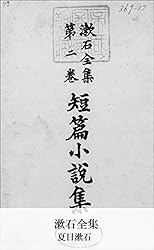 漱石全集
第二卷
短篇小說集
漱石全集
夏目漱石